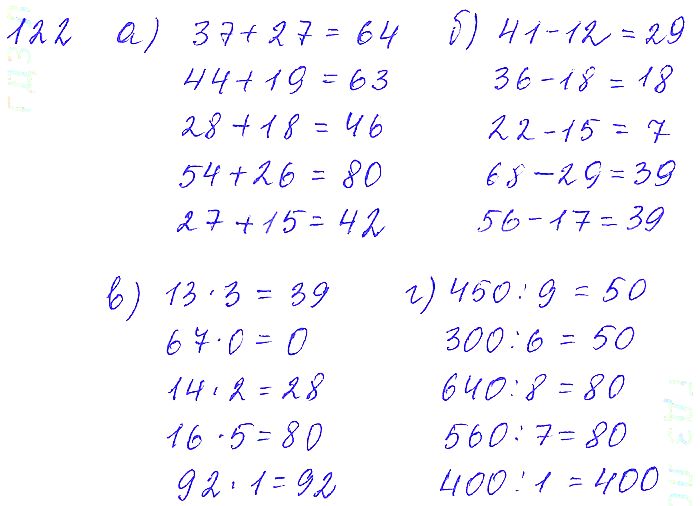 122 а) 37+27=64 б) 41-12=29
44+19=63 36-18=18
28+18=46 22-15=7
54+26=80 68-29=39
27+15=42 56-17=39
в) 13·3=39 г) 450:9=50
67·0=0 300:6=50
14·2=28 640:8=80
16·5=80 560:7=80
92·1=92 400:1=400